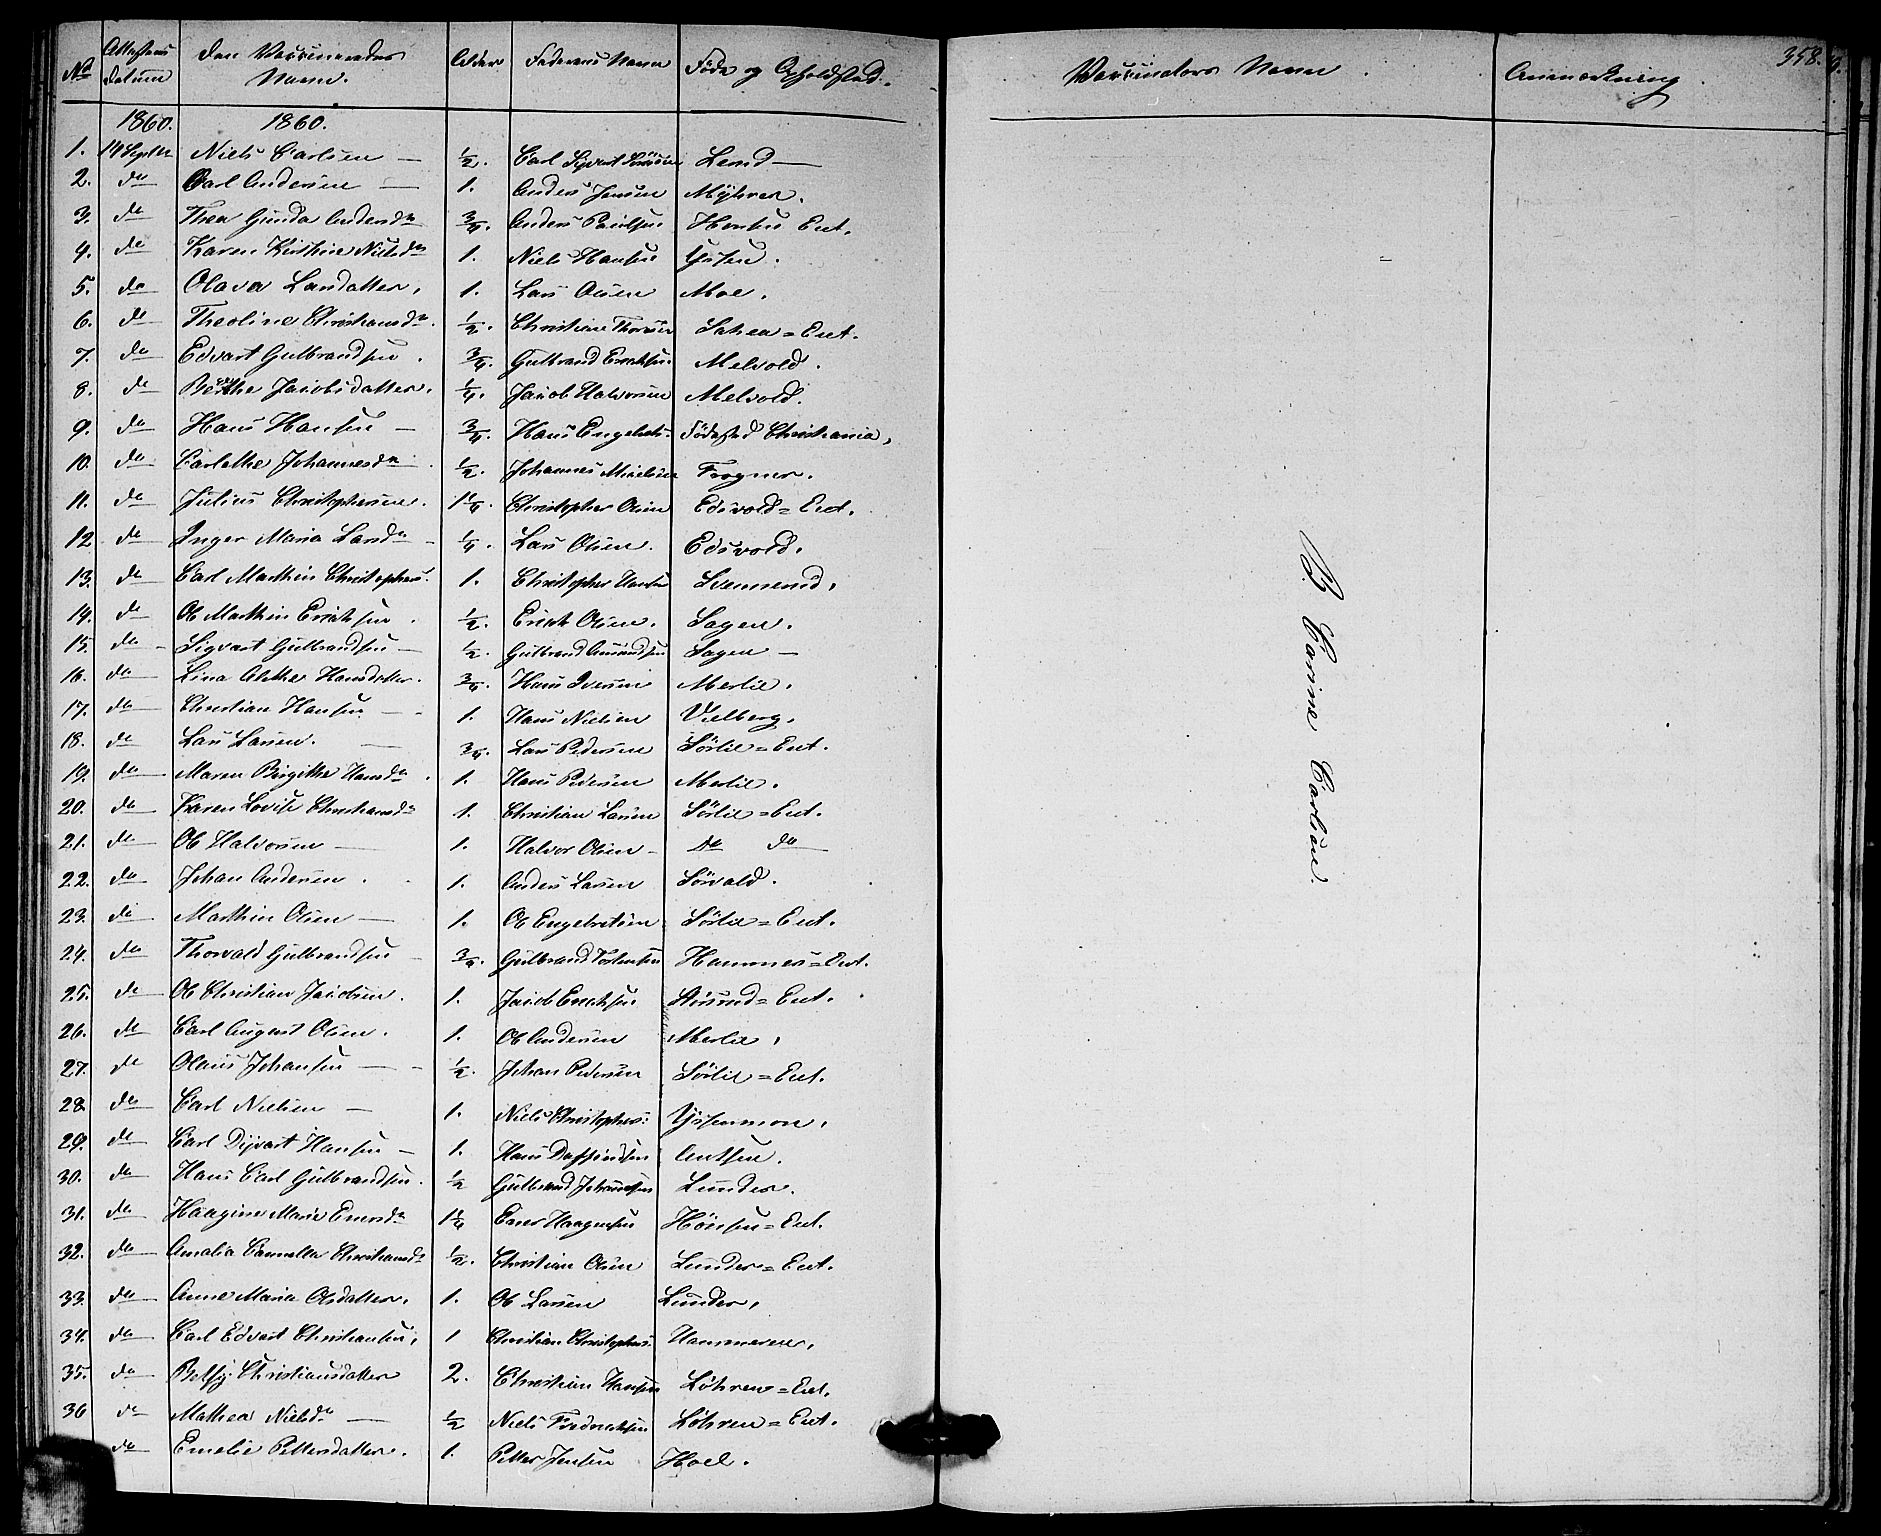 358.
No Attestens Datum Den Vaccineredes Navn. Alder Faderens Navn Føde og Opholdsted.
Vaccinators Navn Anmærkning
1860. 1860.
1. 14 Septbr Niels Carlsen — 1/2. Carl Sigvart Lend —
2. do Carl Andersen — 1. Anders Jensen Myhrer.
3. do Thea Gunda Andersdr 3/4. Anders Paulsen Eut.
4. do Karen Kirstine Nielsdr 1. Niels Hansen
5. do Olava Larsdatter, 1. Lars Olsen Moe.
6. do Theoline Christiansdr. 1/2. Christian Thoresen = Eut.
7. do Edvart Gulbrandsen. 3/4. Gulbrand Erichsen Melvold.
8. do Berthe Jacobsdatter. 1/4. Jacob Halvorsen Melvold.
9. do Hans Hansen — 3/4. Hans Engebrets. Fødested Christiania,
10. do Carlethe Johannesdr 1/2. Johannes Micelsen Frogner.
11. do Julius Christophersen. 1 1/4. Christopher Olsen Edsvold = Eut.
12 do Inger Maria Larsdr 1/4. Lars Olsen. Edsvold.
13. do Carl Marthin Christophers. 1. Christopher Hansen
14. do Ole Marthin Erichsen. 1/2. Erich Olsen. Sagen.
15. do Sigvart Gulbrandsen — 1/2. Gulbrand Amundsen Sagen —
16. do Lina Alethe Hansdatter. 3/4. Hans Iversen Merlie.
17. do Christian Hansen — 1. Hans Nielsen Vielberg.
18. do Lars Larsen. — 3/4. Lars Pedersen Sørlie = Eut.
19. do Maren Birgithe Hansdr. 1. Hans Pedersen Merlie.
20. do Karen Lovise Christiansdr 1. Christian Larsen Sørlie = Eut.
21. do Ole Halvorsen — 1. Halvor Olsen — do do
22. do Johan Andersen. 1. Anders Larsen
23. do Marthin Olsen — 1. Ole Engebretsen Sørlie = Eut.
24. do Thorvald Gulbrandsen 3/4. Gulbrand Torstensen Hammer = Eut.
25. do Ole Christian Jacobsen. 1. Jacob Erichsen = Eut.
26. do Carl August Olsen. 1. Ole Andersen Merlie,
27. do Olaus Johansen — 1/2. Johan Pedersen Sørlie = Eut.
28. do Carl Nielsen — 1. Niels Christophers.
29. do Carl Hansen — 1. Hans Daffindsen
30. do Hans Carl Gulbrandsen. 1/2 Gulbrand Johansen Lunder.
31. do Haagine Marie Enersdr 1 1/4 Ener Haagensen = Eut.
32. do Amalia Camilla Christiansdr 1/2. Christian Olsen Lunder = Eut.
33. do Anne Maria Olsdatter. 1. Ole Larsen Lunder,
34. do Carl Edvart Christiansen, 1 Christian Christophers. Hammeren,
35. do Betsy Christiansdatter 2. Christian Hansen Løhren = Eut.
36 do Mathea Nielsdr — 1/2 Niels Fredrichsen Løhren = Eut.
do Emelie Pettersdatter. 1. Petter Jensen Hoel.
B. Corine Carlsen.